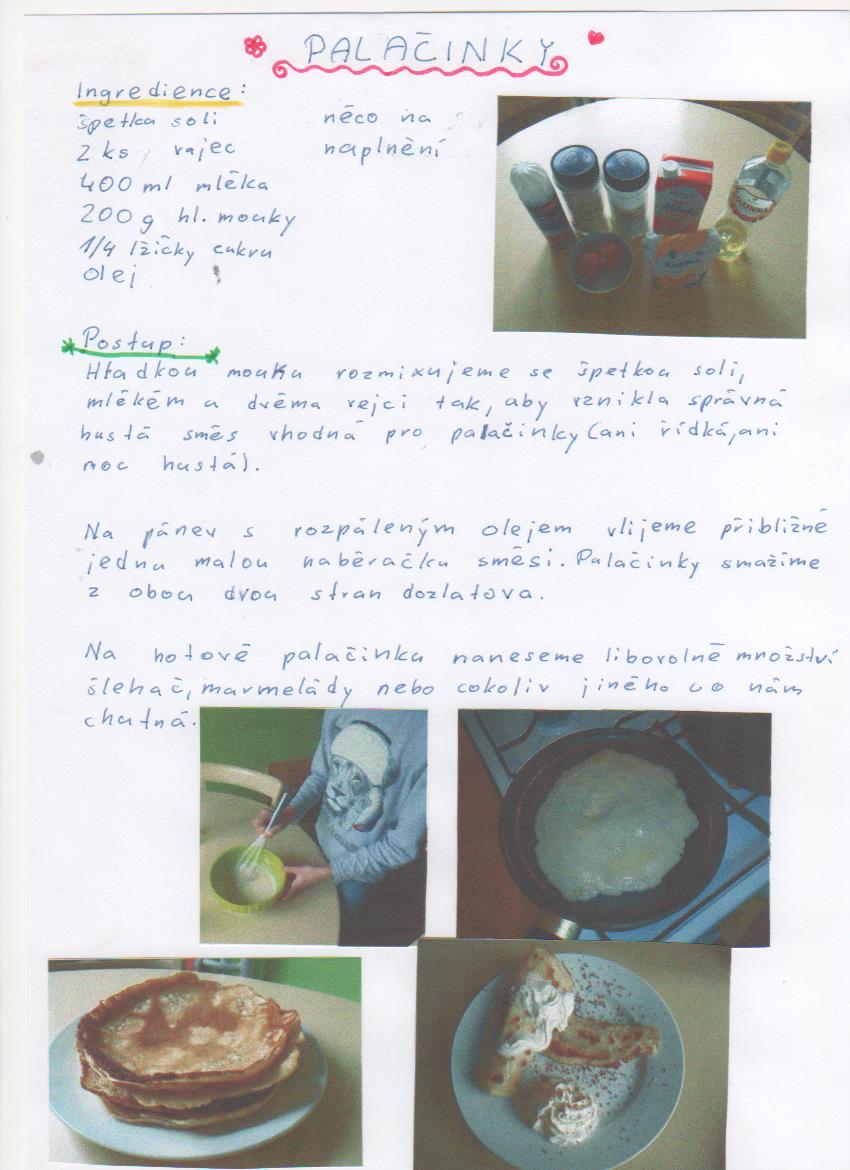 PALAČINKY
Ingredience:
špetka soli
2 ks vajec
400 ml mléka
200 g hl. mouky
1/4 lžičky cukru
olej
něco na
naplnění
Postup:
Hladkou mouku rozmixujeme se špetkou soli,
mlékém a dvěma vejci tak, aby vznikla správná
hustá směs vhodná pro palačinky (ani řídká, ani
moc hustá).
Na pánev s rozpáleným olejem vlijeme přibližně
jednu malou naběračku směsi. Palačinky smažíme
z obou dvou stran dozlatova.
Na hotové palačinku naneseme libovolné množství
šlehač, marmelády nebo cokoliv jiného co nám
chutná.